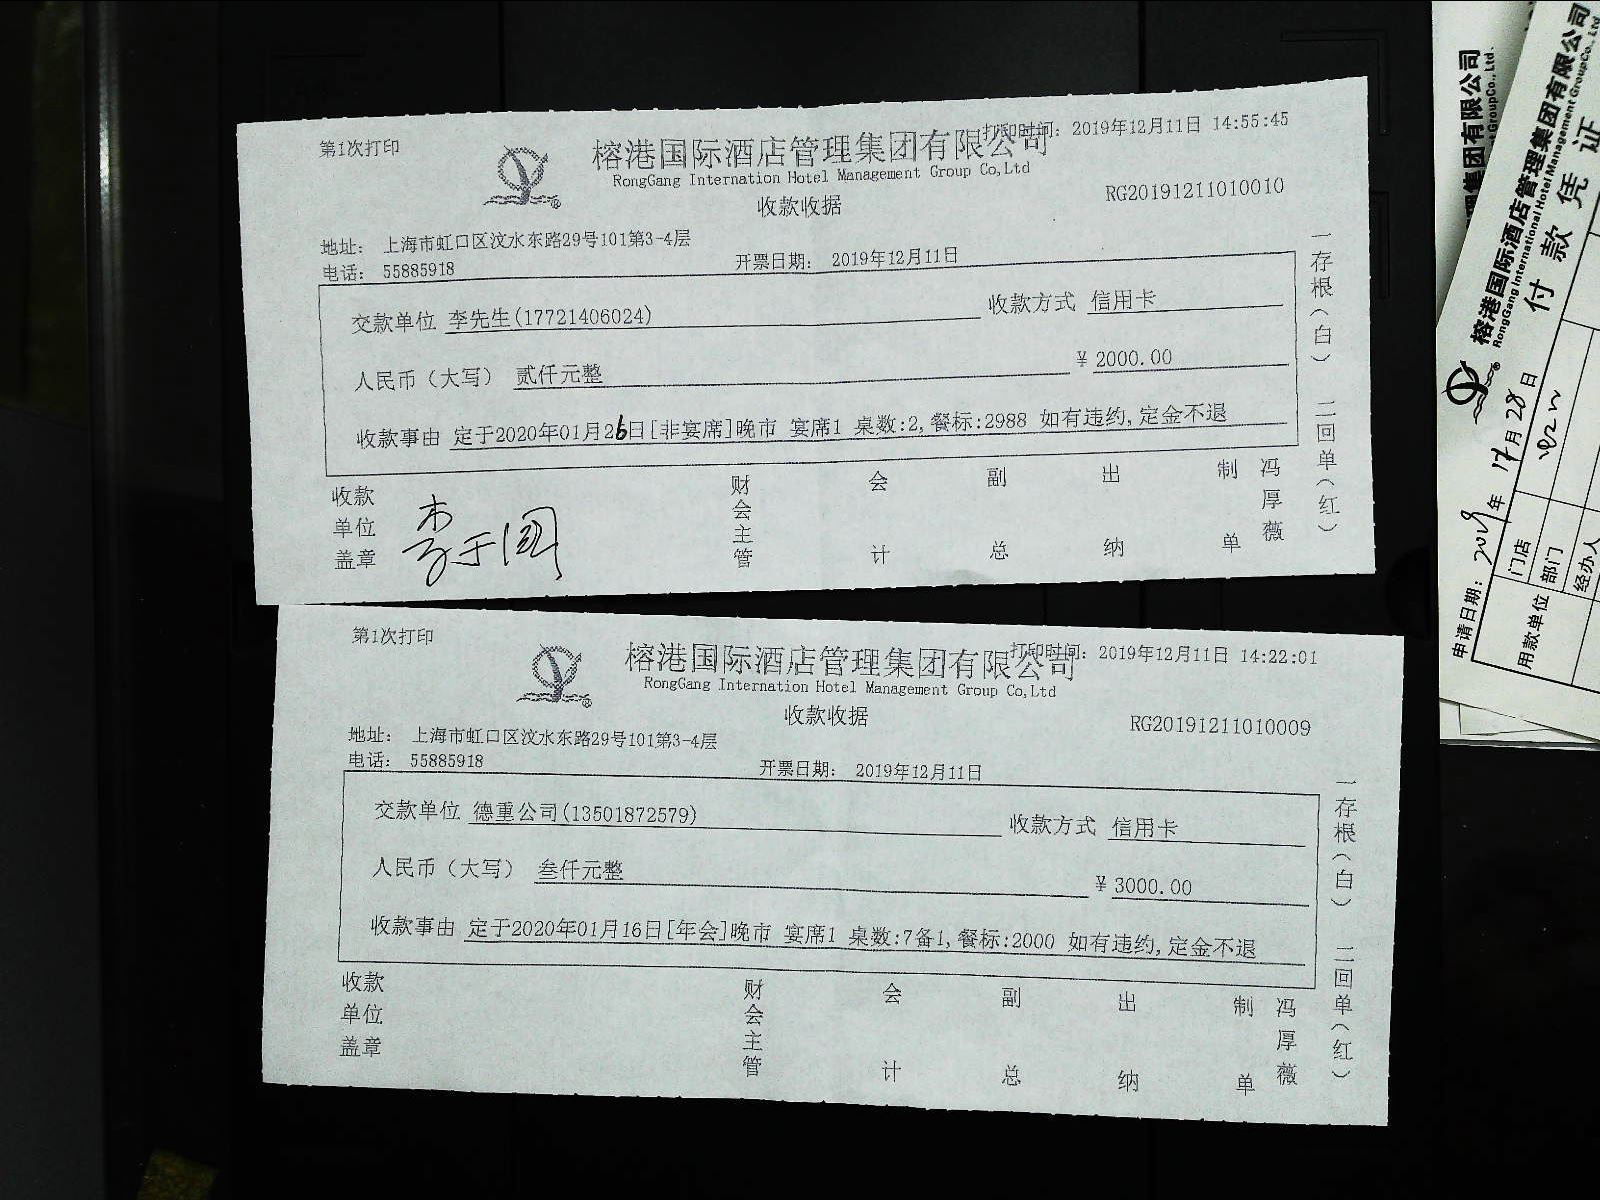 第1次打印
打印时间: 2019年12月11日 14:55:45
榕港国际酒店管理集团有限公司
RongGang International Hotel Management Group Co,Ltd
收款收据
RG20191211010010
地址: 上海市虹口区汶水东路29号101第3-4层
电话: 55885918
开票日期: 2019年12月11日
交款单位 李先生(17721406024)
收款方式 信用卡
人民币（大写） 贰仟元整
¥ 2000.00
收款事由 定于2020年01月26日[非宴席]晚市 宴席1 桌数:2,餐标:2988 如有违约,定金不退
收款单位盖章
财会主管
会计
副总
出纳
制单
冯厚薇
一存根（白） 二回单（红）
第1次打印
打印时间: 2019年12月11日 14:22:01
榕港国际酒店管理集团有限公司
RongGang International Hotel Management Group Co,Ltd
收款收据
RG20191211010009
地址: 上海市虹口区汶水东路29号101第3-4层
电话: 55885918
开票日期: 2019年12月11日
交款单位 德重公司(13501872579)
收款方式 信用卡
人民币（大写） 叁仟元整
¥ 3000.00
收款事由 定于2020年01月16日[年会]晚市 宴席1 桌数:7备1,餐标:2000 如有违约,定金不退
收款单位盖章
财会主管
会计
副总
出纳
制单
冯厚薇
一存根（白） 二回单（红）
集团有限公司
GroupCo., Ltd.
榕港国际酒店管理集团有限公司
RongGang International Hotel Management GroupCo., Ltd
付款凭证
申请日期: 2019年 月28日
用款单位
门店
部门
经办人